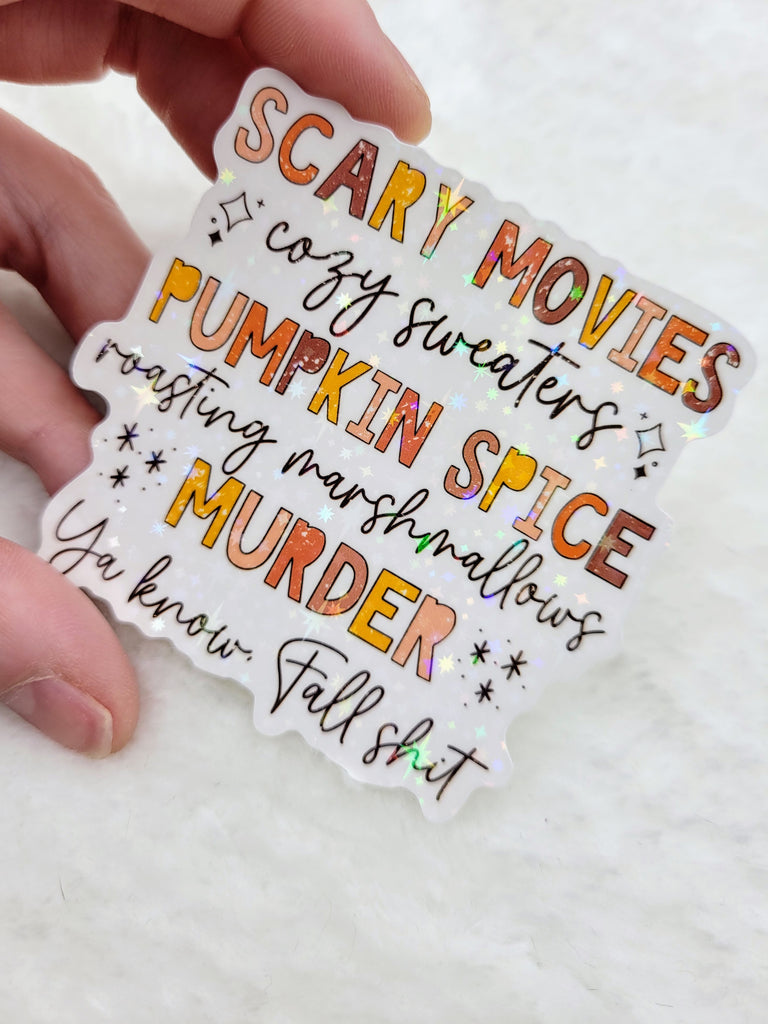 SCARY MOVIES
cozy sweaters
PUMPKIN SPICE
roasting marshmallows
MURDER
Ya know. Fall shit